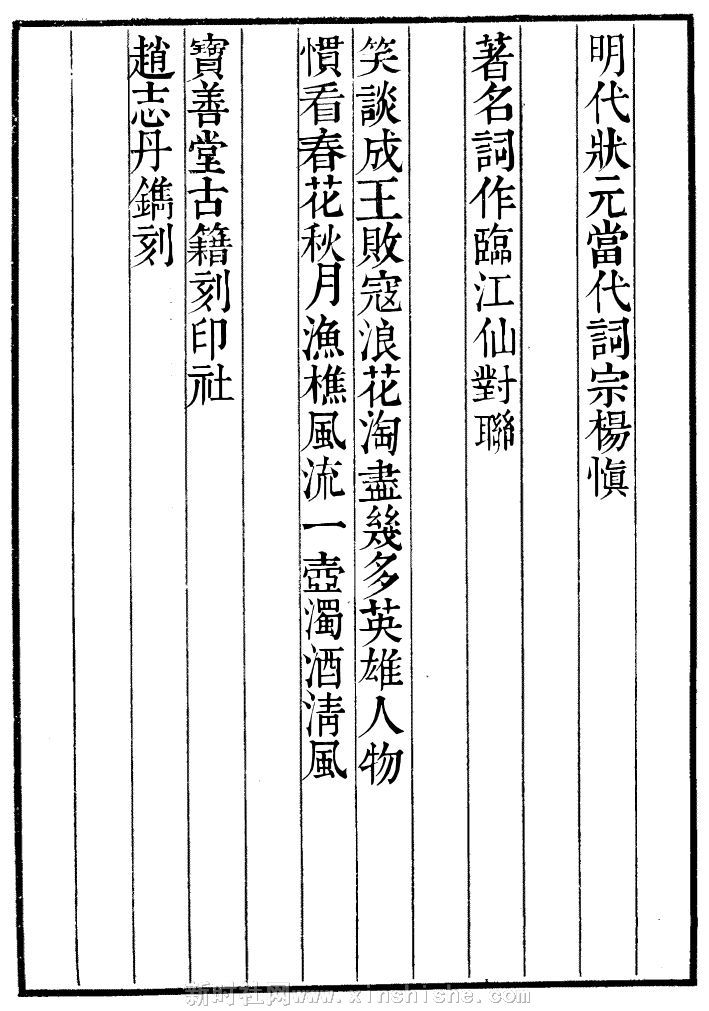 明代狀元當代詞宗楊慎
著名詞作臨江仙對聯
笑談成王敗寇浪花淘盡幾多英雄人物
慣看春花秋月漁樵風流一壺濁酒清風
寶善堂古籍刻印社
趙志丹鐫刻
新时社网www.xinshishe.com